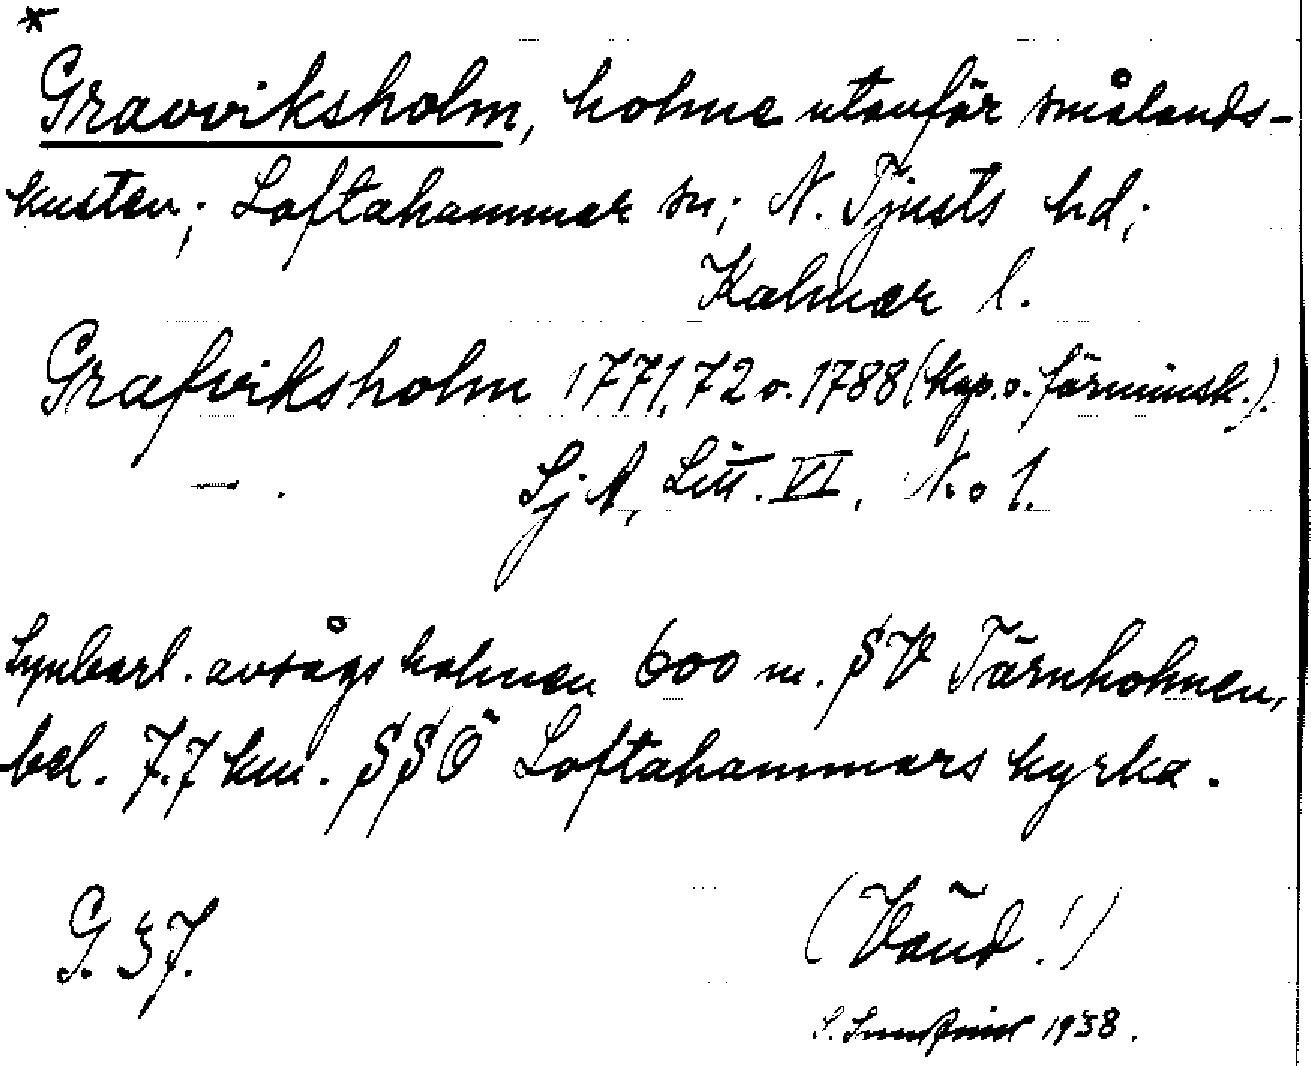 *
Gravviksholm, holme utanför smålands-
kusten; Loftahammar sn; N. Tjusts hd;
Kalmar l.
Grafviksholm 1771, 72 o. 1788 (kop. o. förminsk.).
— . SjA, Litt. VI, N:o 1.
Synbarl. avsågs holmen 600 m. SV Tärnholmen,
bel. 7.7 km. SSÖ Loftahammars kyrka.
G. 37.
(Vänd!)
S. 1938.